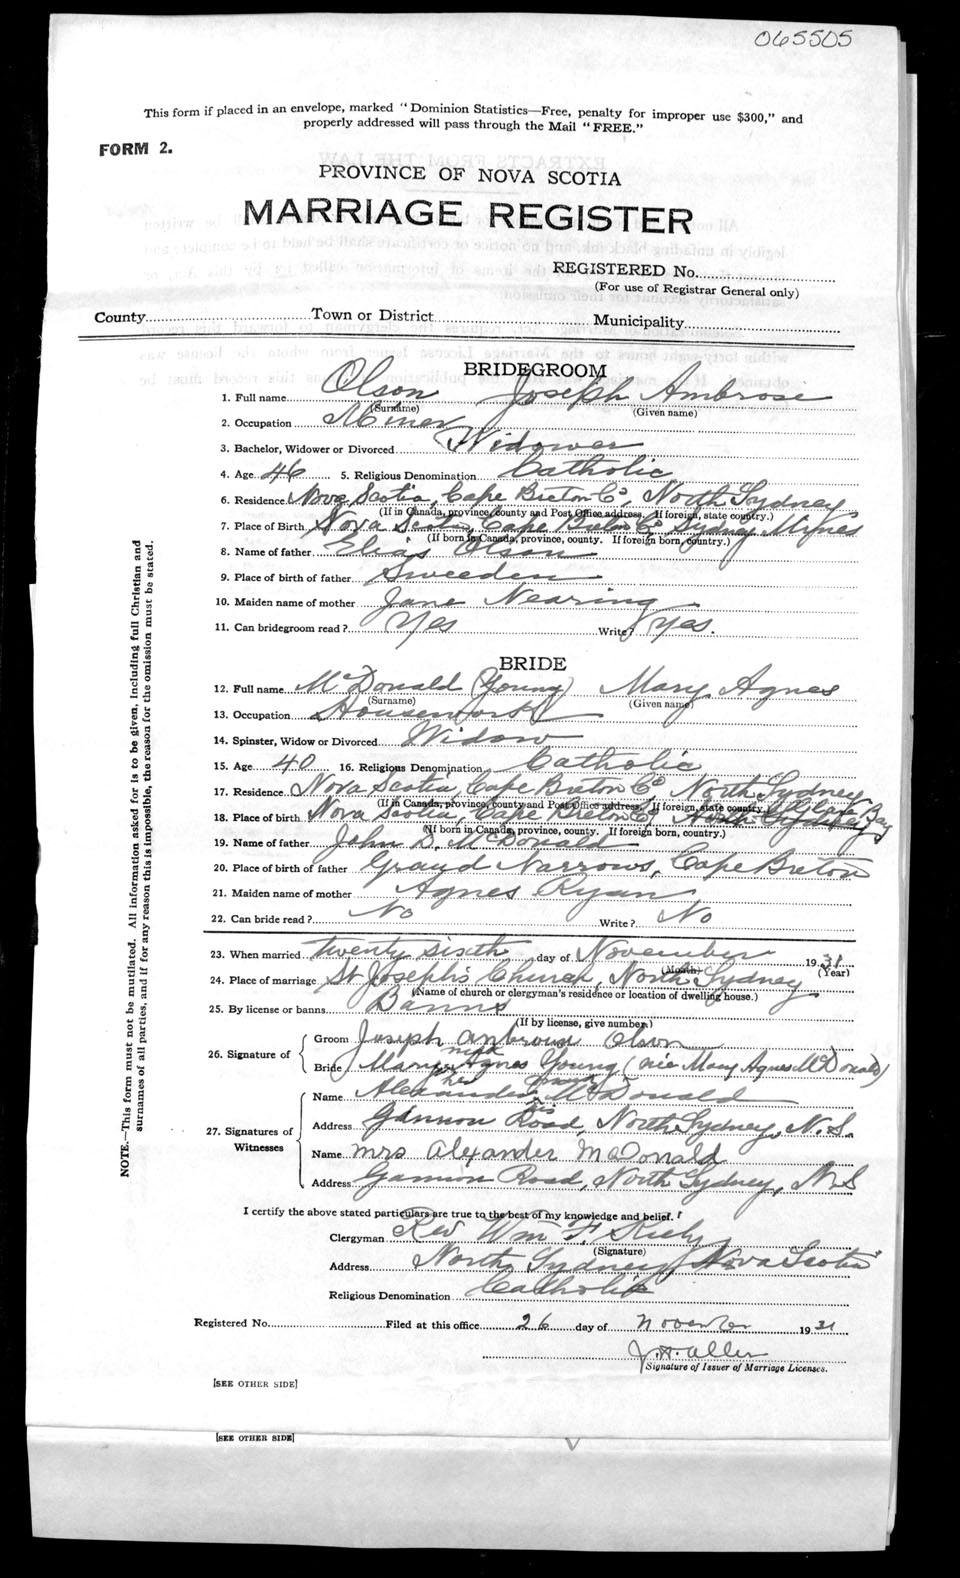 065505
This form if placed in an envelope, marked "Dominion Statistics—Free, penalty for improper use $300," and
properly addressed will pass through the Mail "FREE."
FORM 2.
PROVINCE OF NOVA SCOTIA
MARRIAGE REGISTER
REGISTERED No.
(For use of Registrar General only)
County Town or District Municipality
BRIDEGROOM
1. Full name Olson Joseph Ambrose
(Surname) (Given name)
2. Occupation Miner
3. Bachelor, Widower or Divorced Widower
4. Age 46 5. Religious Denomination Catholic
6. Residence Nova Scotia, Cape Breton Co. North Sydney
(If in Canada, province, county and Post Office address. If foreign, state country.)
7. Place of Birth Nova Scotia, Cape Breton Co. Sydney Mines
(If born in Canada, province, county. If foreign born, country.)
8. Name of father Elias Olson
9. Place of birth of father Sweeden
10. Maiden name of mother Jane Nearing
11. Can bridegroom read? Yes Write? Yes.
BRIDE
12. Full name McDonald (Young) Mary Agnes
(Surname) (Given name)
13. Occupation Housework
14. Spinster, Widow or Divorced Widow
15. Age 40 16. Religious Denomination Catholic
17. Residence Nova Scotia, Cape Breton Co North Sydney
(If in Canada, province, county and Post Office address. If foreign, state country.)
18. Place of birth Nova Scotia, Cape Breton Co. North Sydney Glace Bay
(If born in Canada, province, county. If foreign born, country.)
19. Name of father John D. McDonald
20. Place of birth of father Grand Narrows, Cape Breton
21. Maiden name of mother Agnes Ryan
22. Can bride read? No Write? No
23. When married twenty sixth day of November 1931
(Month) (Year)
24. Place of marriage St Joseph's Church, North Sydney
(Name of church or clergyman's residence or location of dwelling house.)
25. By license or banns Banns
(If by license, give number.)
26. Signature of
Groom Joseph Ambrose Olson
Bride Mary Agnes Young (nee Mary Agnes McDonald)
her mark
27. Signatures of
Witnesses
Name Alexander McDonald
his
Address Gannon Road, North Sydney, N.S.
Name Mrs Alexander McDonald
Address Gannon Road, North Sydney, N.S
I certify the above stated particulars are true to the best of my knowledge and belief.
Clergyman Rev Wm F. Kiely
(Signature)
Address North Sydney Nova Scotia
Religious Denomination Catholic
Registered No. Filed at this office 26 day of November 1931
J.H. Allen
Signature of Issuer of Marriage Licenses.
[SEE OTHER SIDE]
[SEE OTHER SIDE]
NOTE.—This form must not be mutilated. All information asked for is to be given, including full Christian and
surnames of all parties, and if for any reason this is impossible, the reason for the omission must be stated.